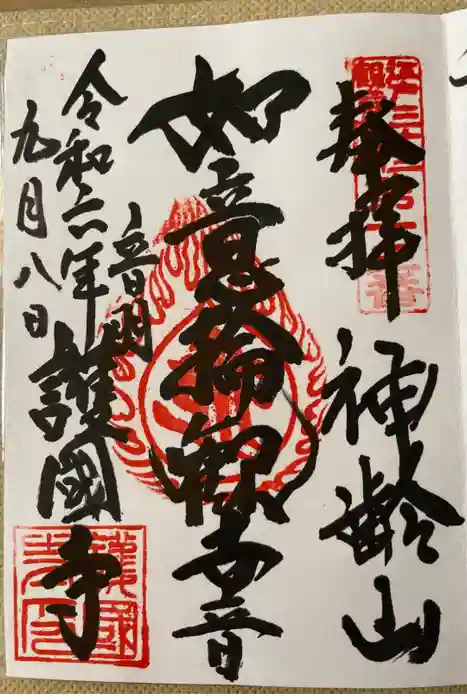 奉拝
神齢山
如意輪観音
音羽
護國寺
令和六年
九月八日